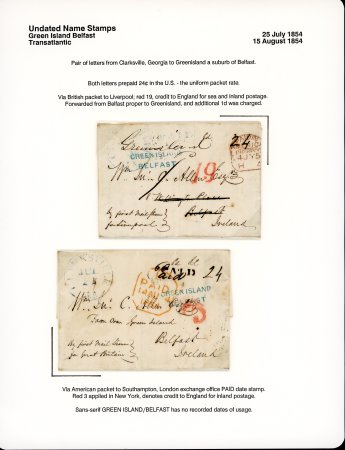 Undated Name Stamps
Green Island Belfast
Transatlantic
25 July 1854
15 August 1854
Pair of letters from Clarksville, Georgia to Greenisland a suburb of Belfast.
Both letters prepaid 24c in the U.S. - the uniform packet rate.
Via British packet to Liverpool; red 19, credit to England for sea and inland postage.
Forwarded from Belfast proper to Greenisland, and additional 1d was charged.
Greenisland
24
GREEN ISLAND
BELFAST
19
Belfast
Ireland
By first mail Steamer
for Liverpool
JUL
PAID
Paid
24
PAID
GREEN ISLAND
BELFAST
3
Green Island
Belfast
By first Mail Steamer
for Great Britain
Ireland
Via American packet to Southampton, London exchange office PAID date stamp.
Red 3 applied in New York, denotes credit to England for inland postage.
Sans-serif GREEN ISLAND/BELFAST has no recorded dates of usage.